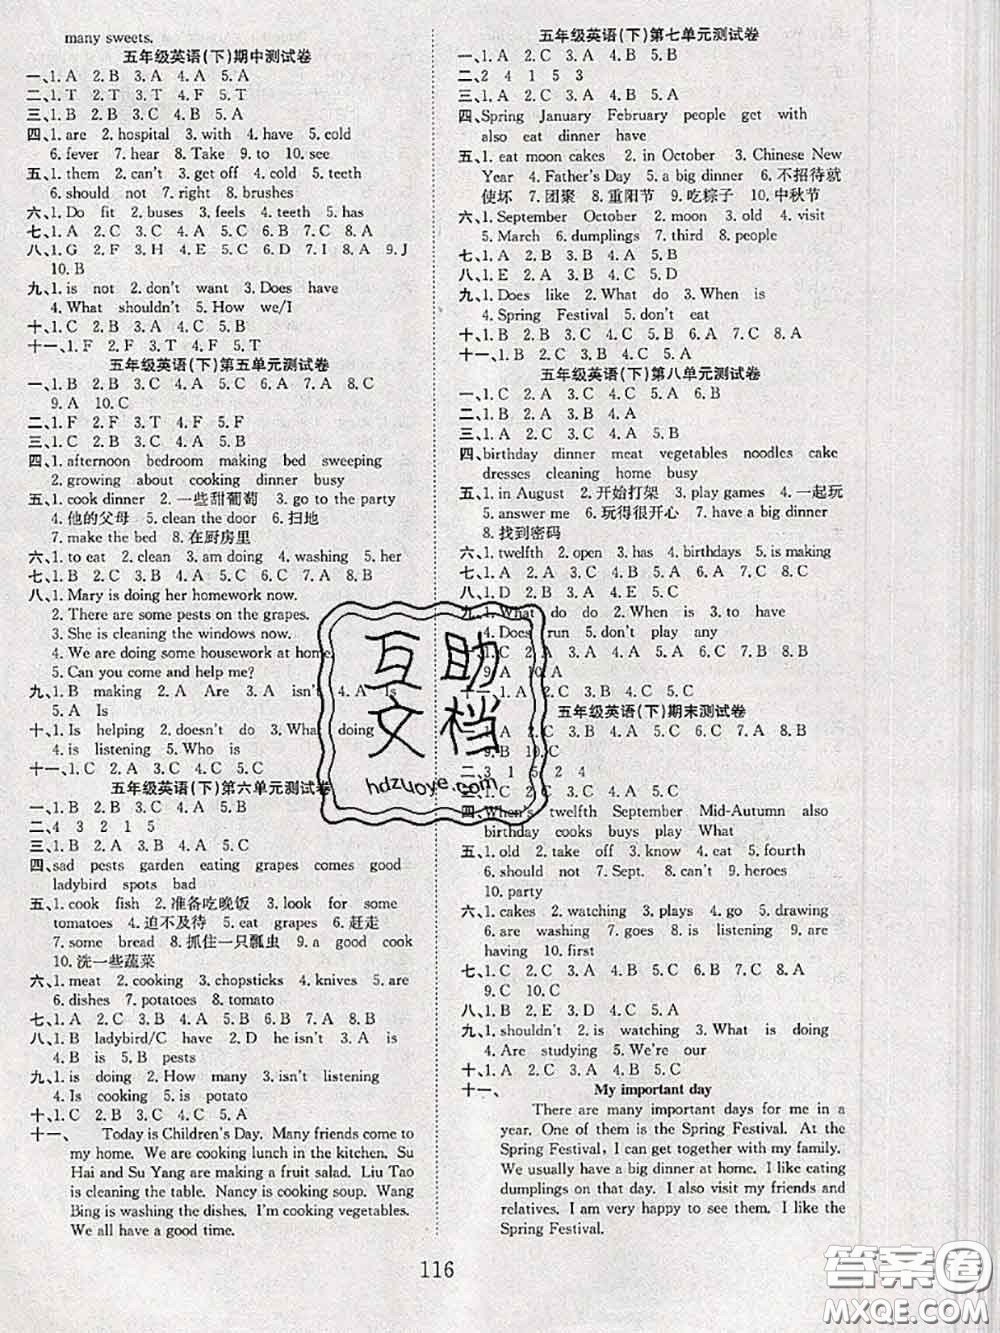 many sweets.
五年级英语(下)期中测试卷
一、1. A 2. B 3. A 4. A 5. A
二、1. T 2. T 3. T 4. F 5. T
三、1. B 2. B 3. C 4. B 5. A
四、1. are 2. hospital 3. with 4. have 5. cold
6. fever 7. hear 8. Take 9. to 10. see
五、1. them 2. can't 3. get off 4. cold 5. teeth
6. should not 7. right 8. brushes
六、1. Do fit 2. buses 3. feels 4. teeth 5. has
七、1. A 2. C 3. A 4. B 5. B 6. C 7. C 8. A
八、1. G 2. F 3. H 4. E 5. C 6. D 7. I 8. A 9. J
10. B
九、1. is not 2. don't want 3. Does have
4. What shouldn't 5. How we/I
十、1. C 2. B 3. A 4. C 5. B
十一、1. F 2. F 3. T 4. T 5. F
五年级英语(下)第五单元测试卷
一、1. B 2. B 3. C 4. A 5. C 6. A 7. A 8. C
9. A 10. C
二、1. F 2. F 3. T 4. F 5. F
三、1. C 2. B 3. C 4. A 5. B
四、1. afternoon bedroom making bed sweeping
2. growing about cooking dinner busy
五、1. cook dinner 2. 一些甜葡萄 3. go to the party
4. 他的父母 5. clean the door 6. 扫地
7. make the bed 8. 在厨房里
六、1. to eat 2. clean 3. am doing 4. washing 5. her
七、1. B 2. B 3. C 4. A 5. B 6. C 7. B 8. C
八、1. Mary is doing her homework now.
2. There are some pests on the grapes.
3. She is cleaning the windows now.
4. We are doing some housework at home.
5. Can you come and help me?
九、1. B making 2. A Are 3. A isn't 4. A Is
5. A Is
十、1. Is helping 2. doesn't do 3. What doing
4. is listening 5. Who is
十一、1. C 2. A 3. B 4. B 5. C
五年级英语(下)第六单元测试卷
一、1. B 2. B 3. C 4. A 5. C
二、4 3 2 1 5
三、1. B 2. C 3. A 4. A 5. C
四、sad pests garden eating grapes comes good
ladybird spots bad
五、1. cook fish 2. 准备吃晚饭 3. look for some
tomatoes 4. 迫不及待 5. eat grapes 6. 赶走
7. some bread 8. 抓住一只瓢虫 9. a good cook
10. 洗一些蔬菜
六、1. meat 2. cooking 3. chopsticks 4. knives 5. are
6. dishes 7. potatoes 8. tomato
七、1. A 2. C 3. B 4. A 5. A 6. B 7. C 8. C
八、1. B ladybird/C have 2. D he isn't 3. A is
4. B is 5. B pests
九、1. is doing 2. How many 3. isn't listening
4. Is cooking 5. is potato
十、1. C 2. A 3. C 4. A 5. B
十一、 Today is Children's Day. Many friends come to
my home. We are cooking lunch in the kitchen. Su
Hai and Su Yang are making a fruit salad. Liu Tao
is cleaning the table. Nancy is cooking soup. Wang
Bing is washing the dishes. I'm cooking vegetables.
We all have a good time.
五年级英语(下)第七单元测试卷
一、1. A 2. C 3. A 4. B 5. B
二、2 4 1 5 3
三、1. A 2. C 3. B 4. B 5. A
四、Spring January February people get with
also eat dinner have
五、1. eat moon cakes 2. in October 3. Chinese New
Year 4. Father's Day 5. a big dinner 6. 不招待就
使坏 7. 团聚 8. 重阳节 9. 吃粽子 10. 中秋节
六、1. September October 2. moon 3. old 4. visit
5. March 6. dumplings 7. third 8. people
七、1. A 2. C 3. B 4. C 5. B
八、1. E 2. A 3. D 4. C 5. B
九、1. Does like 2. What do 3. When is
4. Spring Festival 5. don't eat
十、1. B 2. B 3. A 4. C 5. B 6. A 7. C 8. A
十一、1. C 2. B 3. C 4. A 5. C
五年级英语(下)第八单元测试卷
一、1. C 2. C 3. B 4. C 5. A 6. B
二、1. B 2. A 3. B 4. A
三、1. C 2. B 3. A 4. A 5. B
四、birthday dinner meat vegetables noodles cake
dresses cleaning home busy
五、1. in August 2. 开始打架 3. play games 4. 一起玩
5. answer me 6. 玩得很开心 7. have a big dinner
8. 找到密码
六、1. twelfth 2. open 3. has 4. birthdays 5. is making
七、1. A 2. A 3. B 4. A 5. C 6. B 7. C 8. A
八、1. D 2. B 3. A 4. E 5. C
九、1. What do do 2. When is 3. to have
4. Does run 5. don't play any
十、1. C 2. C 3. B 4. A 5. C 6. B 7. C 8. B
9. A 10. A
十一、1. C 2. C 3. A 4. A 5. C
五年级英语(下)期末测试卷
9. B 10. C
二、3 1 5 2 4
三、1. C 2. C 3. B 4. B 5. C
四、When's twelfth September Mid-Autumn also
birthday cooks buys play What
五、1. old 2. take off 3. know 4. eat 5. fourth
6. should not 7. Sept. 8. can't 9. heroes
10. party
六、1. cakes 2. watching 3. plays 4. go 5. drawing
6. are washing 7. goes 8. is listening 9. are
having 10. first
七、1. C 2. B 3. A 4. B 5. C 6. B 7. B 8. C
9. C 10. C
八、1. B 2. E 3. D 4. C 5. A
九、1. shouldn't 2. is watching 3. What is doing
4. Are studying 5. We're our
十、1. C 2. A 3. C 4. B 5. C
十一、 My important day
There are many important days for me in a
year. One of them is the Spring Festival. At the
Spring Festival, I can get together with my family.
We usually have a big dinner at home. I like eating
dumplings on that day. I also visit my friends and
relatives. I am very happy to see them. I like the
Spring Festival.
116
互助
文档
hdzuoye.com
答案圈
MXQE.COM